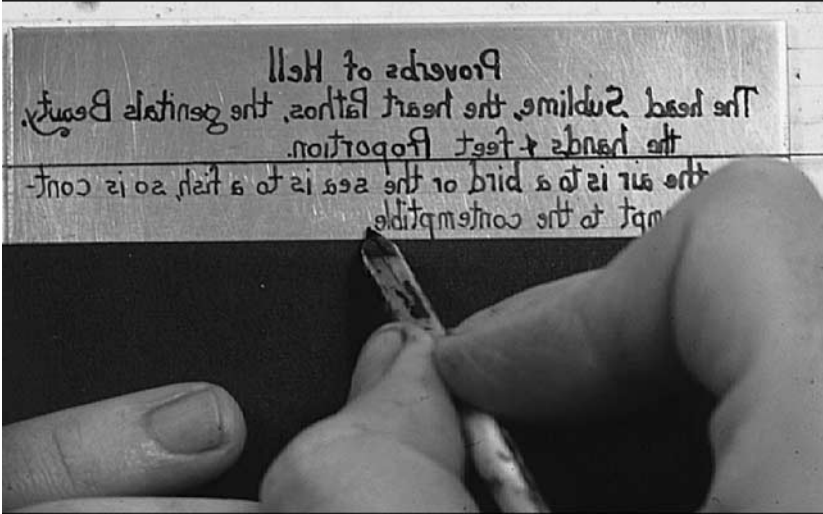 Proverbs of Hell
The head Sublime, the heart Pathos, the genitals Beauty,
the hands & feet Proportion.
the air is to a bird or the sea is to a fish, so is cont-
mpt to the contemptible